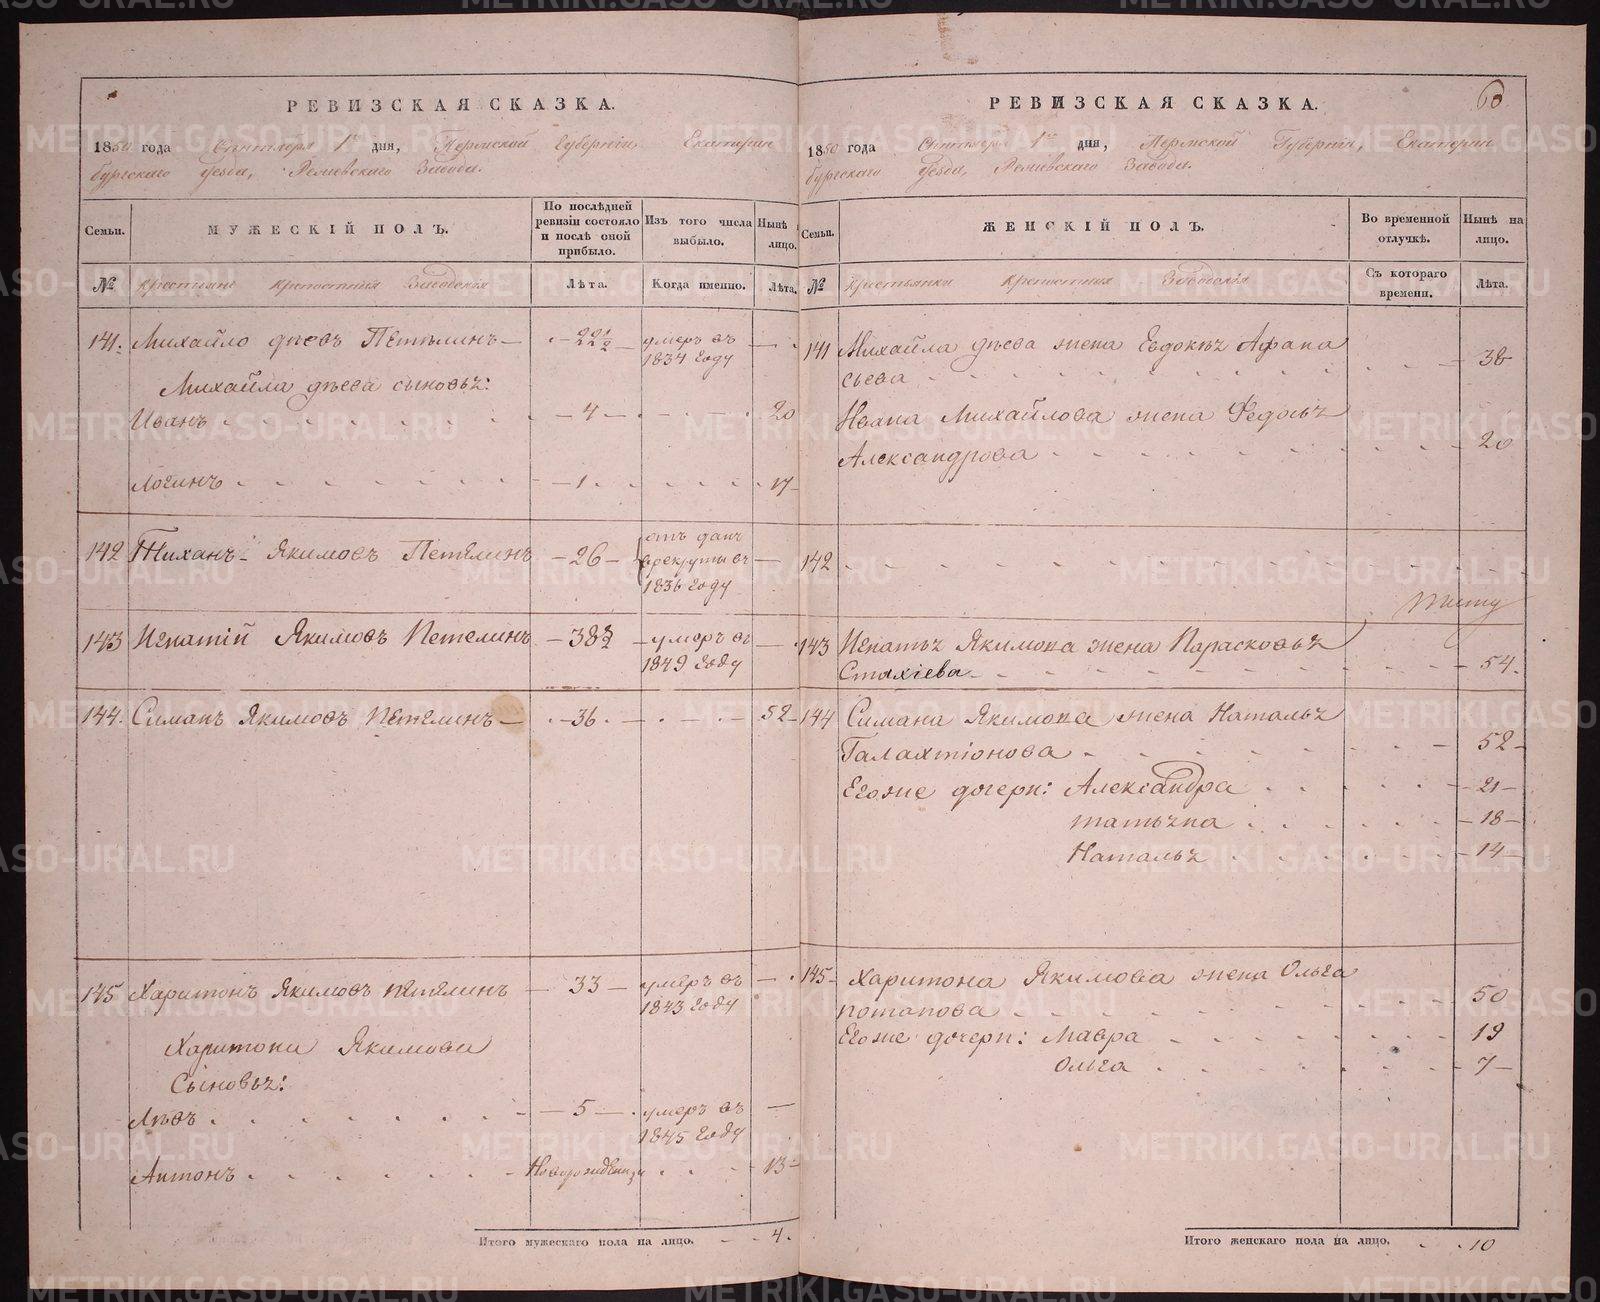 РЕВИЗСКАЯ СКАЗКА.
1850 года Сентября 1го дня, Пермской Губернiи Екатерин
бургскаго Уезда, Режевскаго Завода.
Семьи.
МУЖЕСКІЙ ПОЛЪ.
По послѣдней
ревизіи состояло
и послѣ оной
прибыло.
Изъ того числа
выбыло.
Нынѣ
лицо.
№
Крестьяне Крепостныя Заводскiя
Лѣта.
Когда именно.
Лѣта.
141. Михайло Петелинъ — 22 1/2 умеръ въ —
1834 году
Михайла сыновьx:
Иванъ — 4 — 20
Логинъ — 1 17
142 Тиханъ Якимовъ Петелинъ — 26 — отъ данъ
врекруты въ —
1836 году
143 Игнатій Якимовъ Петелинъ — 38 1/2 — умеръ въ —
1849 году
144. Симанъ Якимовъ Петелинъ — 36 — 52
145 Харитонъ Якимовъ Петелинъ — 33 — умеръ въ —
1843 году
Харитона Якимова
Сыновья:
Львъ — 5 — умеръ въ —
1845 году
Антонъ Новорожденъ 13
Итого мужескаго пола на лицо. 4.
РЕВИЗСКАЯ СКАЗКА.
60
1850 года Сентября 1го дня, Пермской Губернiи, Екатерин
бургскаго Уезда, Режевскаго Завода.
Семьи.
ЖЕНСКІЙ ПОЛЪ.
Во временной
отлучкѣ.
Нынѣ на
лицо.
№
Крестьянки Крепостныя Заводскiя
Съ котораго
времени.
Лѣта.
141 Михайла жена Евдокья Афана
сьева 38
Ивана Михайлова жена Федосья
Александрова 20
142
143 Игнатья Якимова жена Парасковья
Стахіева 54
144 Симана Якимова жена Наталья
Галахтіонова 52
Егоже дочери: Александра 21
татьяна 18
Наталья 14
145 Харитона Якимова жена Ольга
потапова 50
Егоже дочери: Мавра 19
Ольга 7
Итого женскаго пола на лицо. 10
METRIKI.GASO-URAL.RU